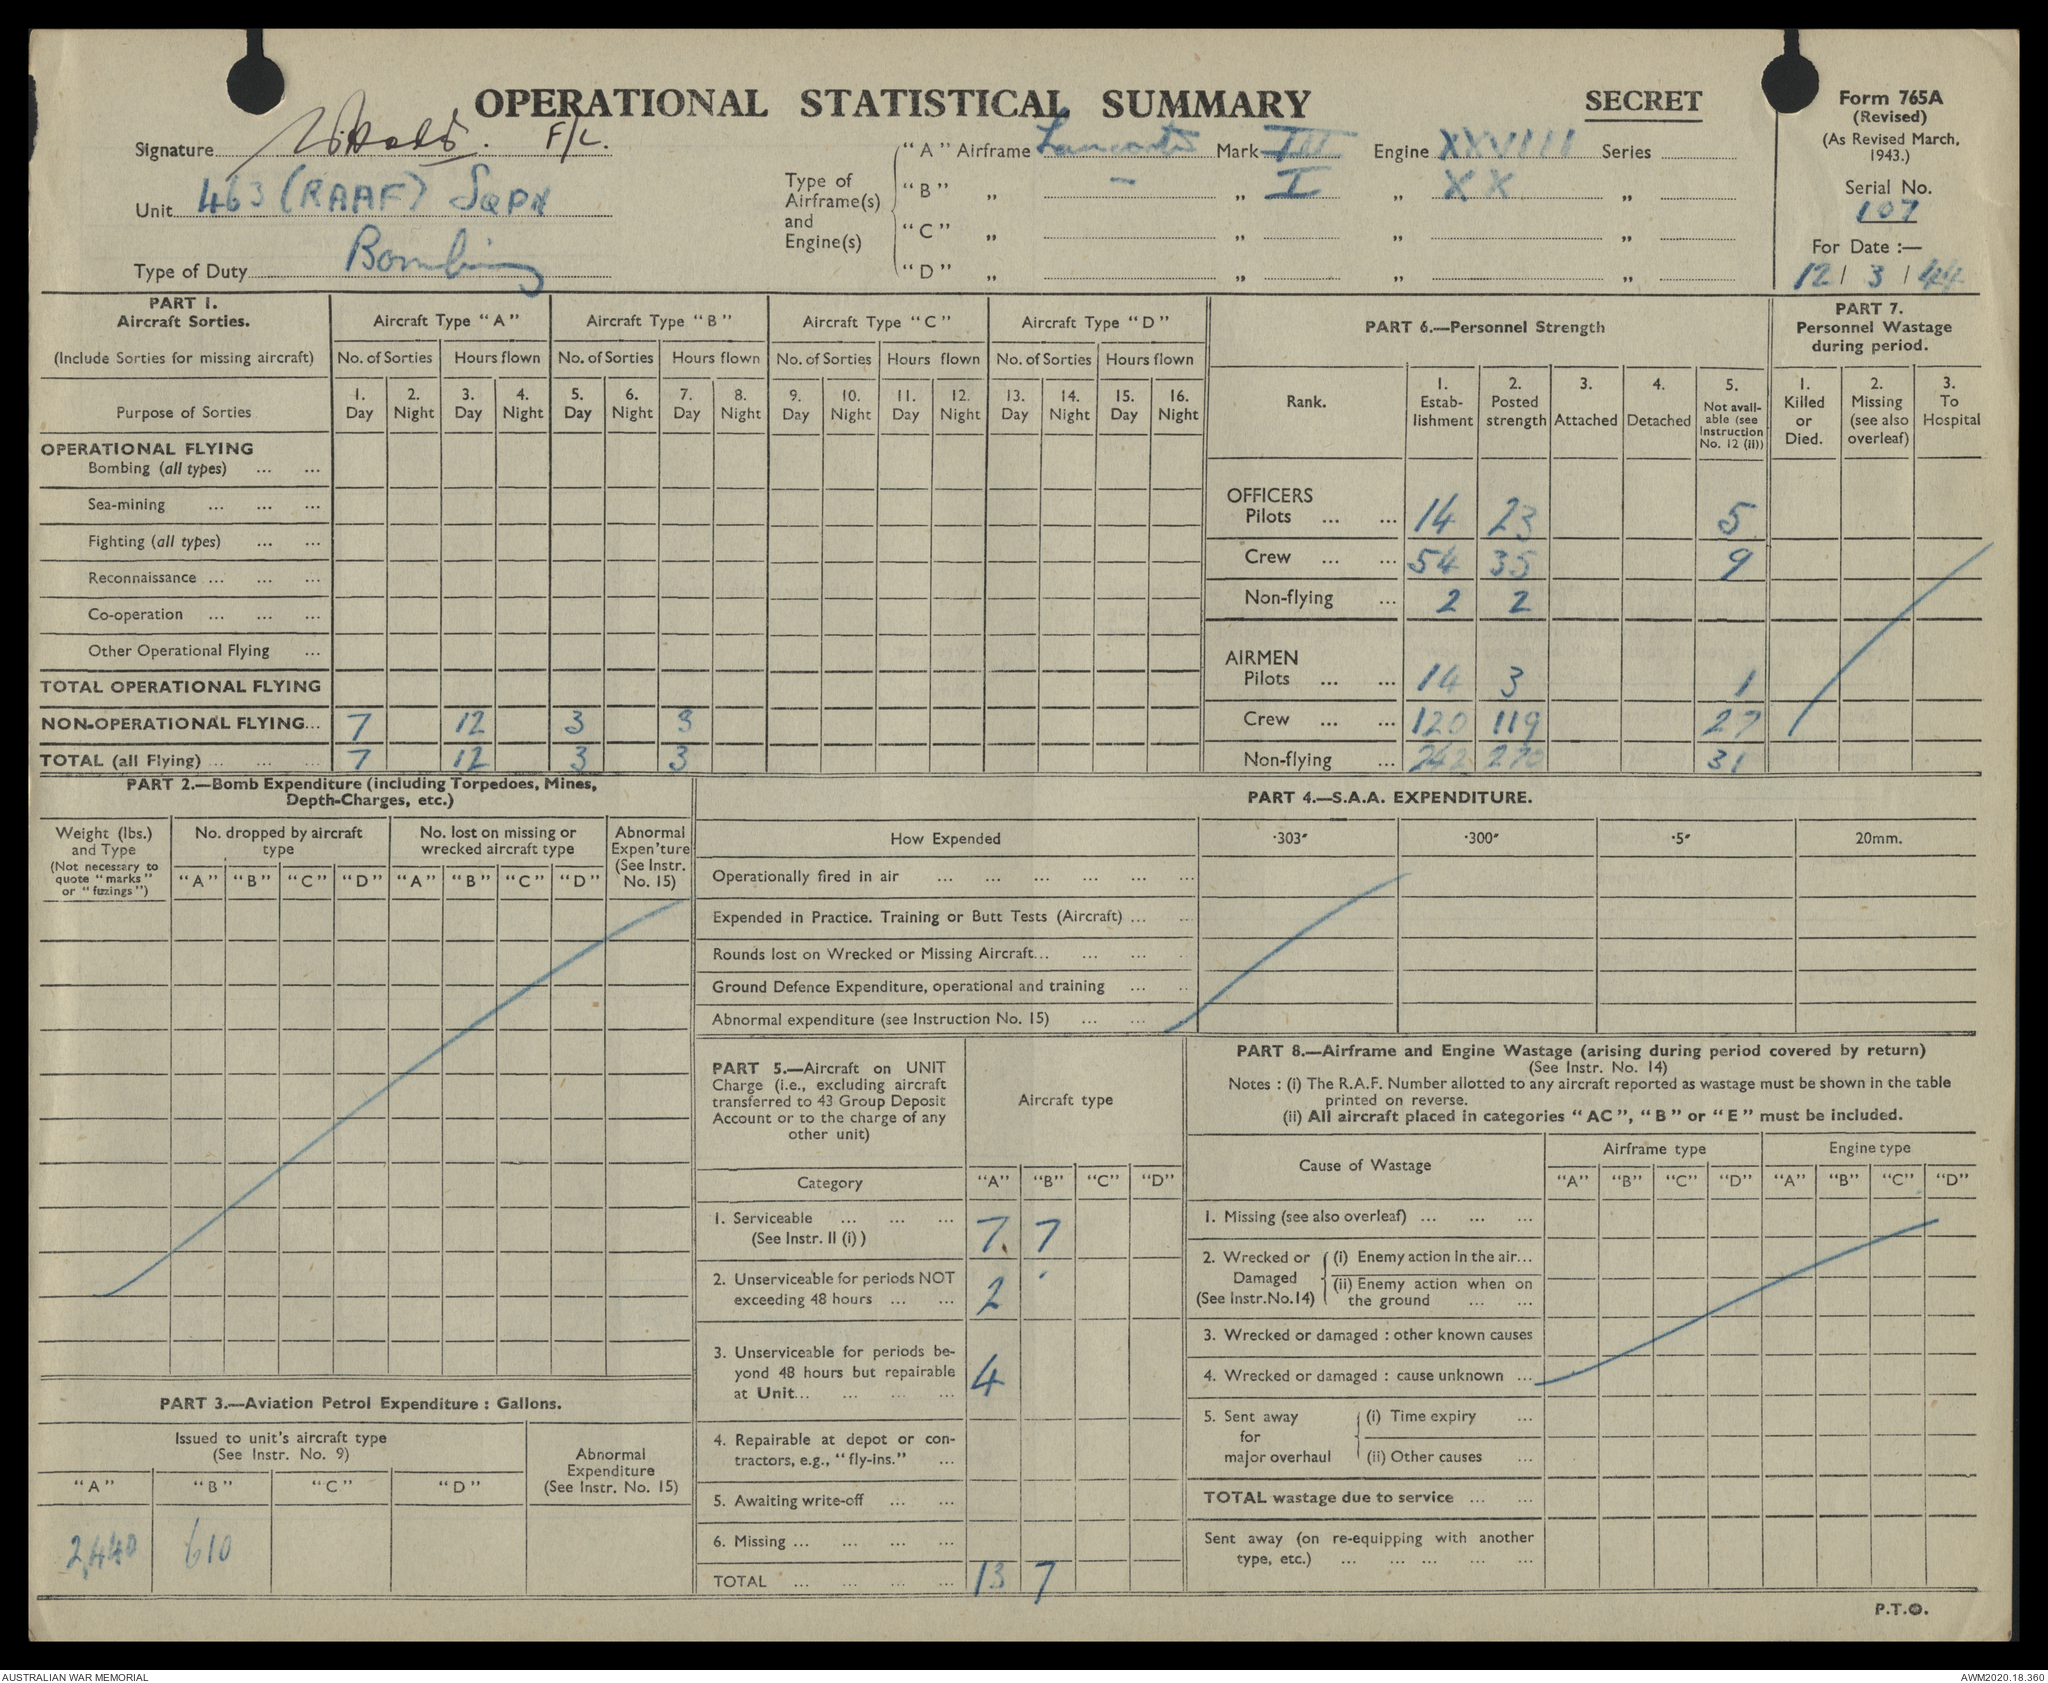 OPERATIONAL STATISTICAL SUMMARY
SECRET
Form 765A
(Revised)
(As Revised March, 1943.)
Serial No.
107
For Date :—
12 / 3 / 44
Signature F/L.
Unit 463 (RAAF) SQDN
Type of Duty Bombing
Type of Airframe(s) and Engine(s)
"A" Airframe Lancaster Mark III Engine XXVIII Series
"B" „ - „ I „ XX „
"C" „ „ „ „
"D" „ „ „ „
PART 1.
Aircraft Sorties.
(Include Sorties for missing aircraft)
Aircraft Type "A" Aircraft Type "B" Aircraft Type "C" Aircraft Type "D"
No. of Sorties Hours flown No. of Sorties Hours flown No. of Sorties Hours flown No. of Sorties Hours flown
Purpose of Sorties
1. Day 2. Night 3. Day 4. Night 5. Day 6. Night 7. Day 8. Night 9. Day 10. Night 11. Day 12. Night 13. Day 14. Night 15. Day 16. Night
OPERATIONAL FLYING
Bombing (all types) ... ...
Sea-mining ... ... ...
Fighting (all types) ... ...
Reconnaissance ... ... ...
Co-operation ... ... ...
Other Operational Flying ...
TOTAL OPERATIONAL FLYING
NON-OPERATIONAL FLYING... 7 12 3 3
TOTAL (all Flying) ... ... ... 7 12 3 3
PART 6.—Personnel Strength
Rank.
1. Estab-lishment
2. Posted strength
3. Attached
4. Detached
5. Not avail-able (see Instruction No. 12 (ii))
OFFICERS
Pilots ... ... 14 23 5
Crew ... ... 54 35 9
Non-flying ... 2 2
AIRMEN
Pilots ... ... 14 3 1
Crew ... ... 120 119 27
Non-flying ... 242 270 31
PART 7.
Personnel Wastage during period.
1. Killed or Died.
2. Missing (see also overleaf)
3. To Hospital
PART 2.—Bomb Expenditure (including Torpedoes, Mines,
Depth-Charges, etc.)
Weight (lbs.) and Type
(Not necessary to quote "marks" or "fuzings")
No. dropped by aircraft type
No. lost on missing or wrecked aircraft type
Abnormal Expen'ture (See Instr. No. 15)
"A" "B" "C" "D" "A" "B" "C" "D"
PART 4.—S.A.A. EXPENDITURE.
How Expended ·303″ ·300″ ·5″ 20mm.
Operationally fired in air ... ... ... ... ... ...
Expended in Practice. Training or Butt Tests (Aircraft) ... ...
Rounds lost on Wrecked or Missing Aircraft... ... ... ...
Ground Defence Expenditure, operational and training ... ...
Abnormal expenditure (see Instruction No. 15) ... ...
PART 3.—Aviation Petrol Expenditure : Gallons.
Issued to unit's aircraft type
(See Instr. No. 9)
Abnormal Expenditure
(See Instr. No. 15)
"A" "B" "C" "D"
2,440 610
PART 5.—Aircraft on UNIT
Charge (i.e., excluding aircraft
transferred to 43 Group Deposit
Account or to the charge of any
other unit)
Aircraft type
Category "A" "B" "C" "D"
1. Serviceable ... ... ...
(See Instr. II (i) ) 7 7
2. Unserviceable for periods NOT
exceeding 48 hours ... ... 2
3. Unserviceable for periods be-
yond 48 hours but repairable
at Unit... ... ... ... 4
4. Repairable at depot or con-
tractors, e.g., "fly-ins." ...
5. Awaiting write-off ... ...
6. Missing ... ... ... ...
TOTAL ... ... ... ... 13 7
PART 8.—Airframe and Engine Wastage (arising during period covered by return)
(See Instr. No. 14)
Notes : (i) The R.A.F. Number allotted to any aircraft reported as wastage must be shown in the table
printed on reverse.
(ii) All aircraft placed in categories "AC", "B" or "E" must be included.
Cause of Wastage
Airframe type Engine type
"A" "B" "C" "D" "A" "B" "C" "D"
1. Missing (see also overleaf) ... ... ...
2. Wrecked or Damaged (See Instr.No.14)
(i) Enemy action in the air...
(ii) Enemy action when on
the ground ... ...
3. Wrecked or damaged : other known causes
4. Wrecked or damaged : cause unknown ...
5. Sent away for major overhaul
(i) Time expiry ...
(ii) Other causes ...
TOTAL wastage due to service ... ...
Sent away (on re-equipping with another
type, etc.) ... ... ... ... ...
P.T.O.
AUSTRALIAN WAR MEMORIAL
AWM2020.18.360